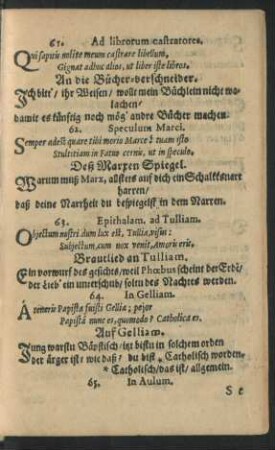 61. Ad librorum castratores.
Qui sapitis nolite meum castrare libellum,
Gignat adhuc alios, ut liber iste libros.
An die Bücher-verschneider.
Ich bitt / ihr Weisen / wollt mein Büchlein nicht wa-
lachen /
damit es künfftig noch mög' andre Bücher machen.
62. Speculum Marci.
Semper adest quare tibi morio Marce? tuam isto
Stultitiam in Fatuo cernis, ut in speculo.
Deß Marxen Spiegel.
Warum muß Marx / allstets auf dich ein Schalksnarr
harren /
daß deine Narrheit du bespiegelst in dem Narren.
63. Epithalam. ad Tulliam.
Objectum nostri dum lux est, Tullia, visus:
Subjectum, cum nox venit, Amoris eris.
Brautlied an Tulliam.
Ein vorwurf des gesichts / weil Phœbus scheint der Erd /
der Lieb' ein unterschub / solst des Nachtes werden.
64. In Gelliam.
A teneris Papista fuisti Gellia; pejor
Papistâ nunc es, quomodo? Catholica es.
Auf Gelliam.
Jung warstu Bäpstisch / itz bistu in solchem orden
der ärger ist: wie daß? du bist * Catholisch worden.
* Catholisch / das ist / allgemein.
65. In Aulum.
Se